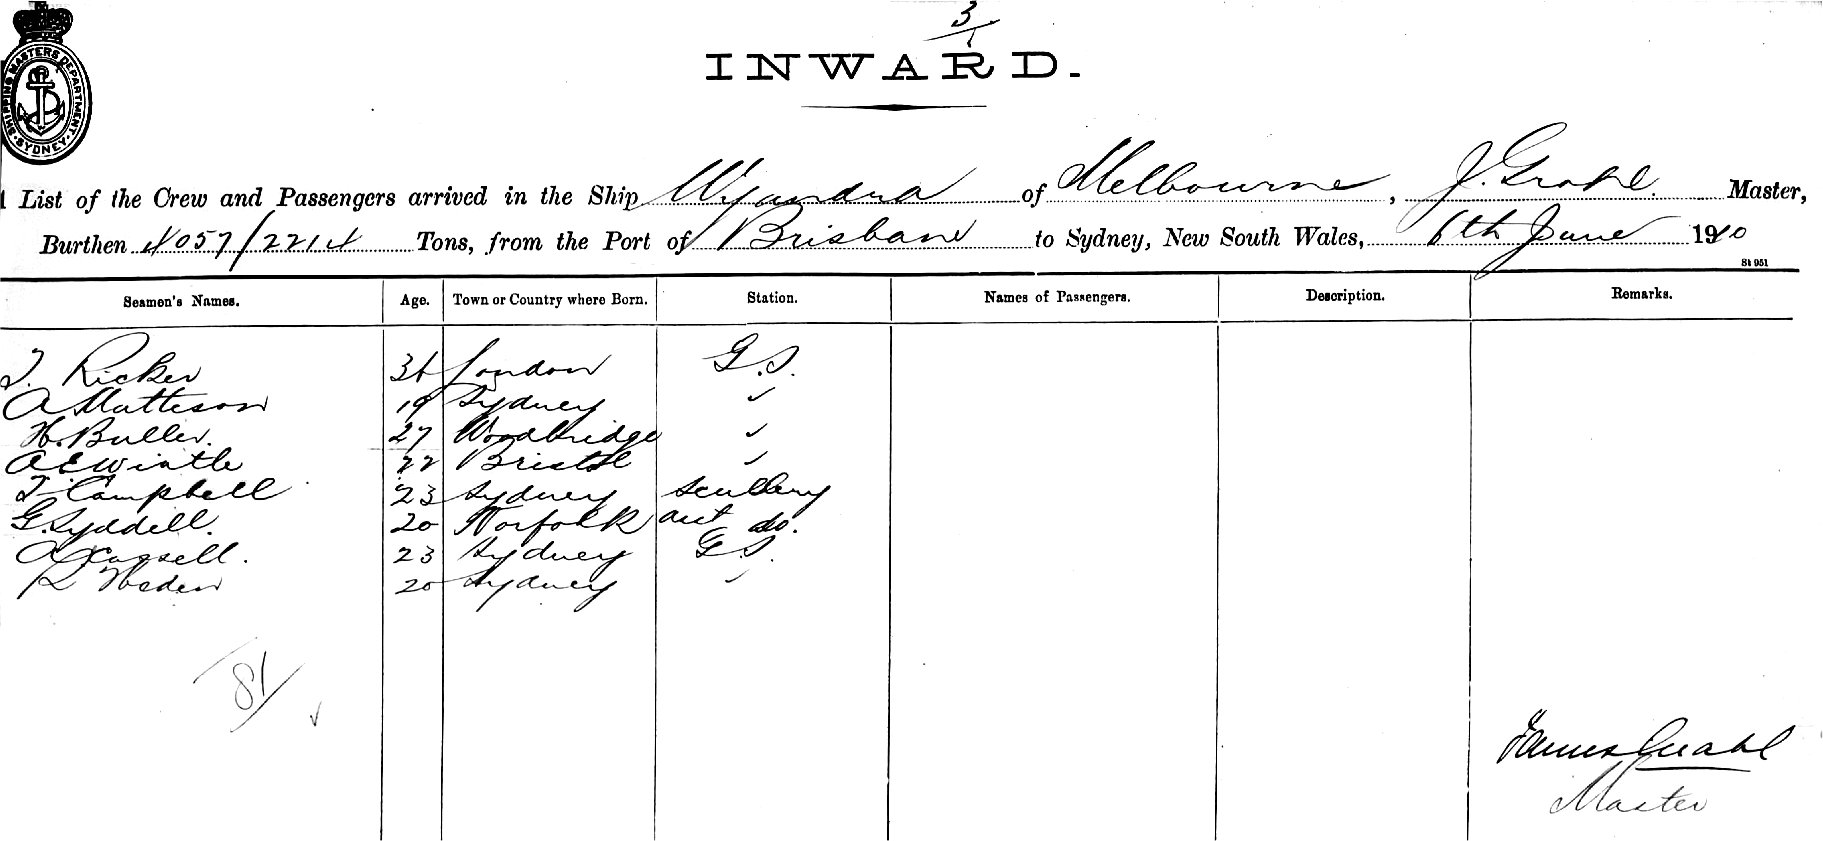 3/1
INWARD.
SHIPPING MASTERS DEPARTMENT. SYDNEY.
List of the Crew and Passengers arrived in the Ship Wyandra of Melbourne, J. Grahl. Master,
Burthen 4057/2214 Tons, from the Port of Brisbane to Sydney, New South Wales, 6th June 1910
St 951
Seamen's Names. Age. Town or Country where Born. Station. Names of Passengers. Description. Remarks.
T. Ricker 36 London G.S.
A Matteson 19 Sydney "
H. Buller. 27 Woodbridge "
A E Wintle 22 Bristol "
T. Campbell 23 Sydney Scullery
G. Syddell. 20 Norfolk ast do.
A Cassell. 23 Sydney G.S.
20 Sydney "
81
James Grahl
Master